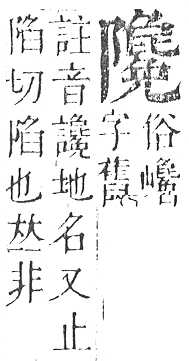 俗巉
字舊
註音讒地名又止
陷切陷也𠀤非